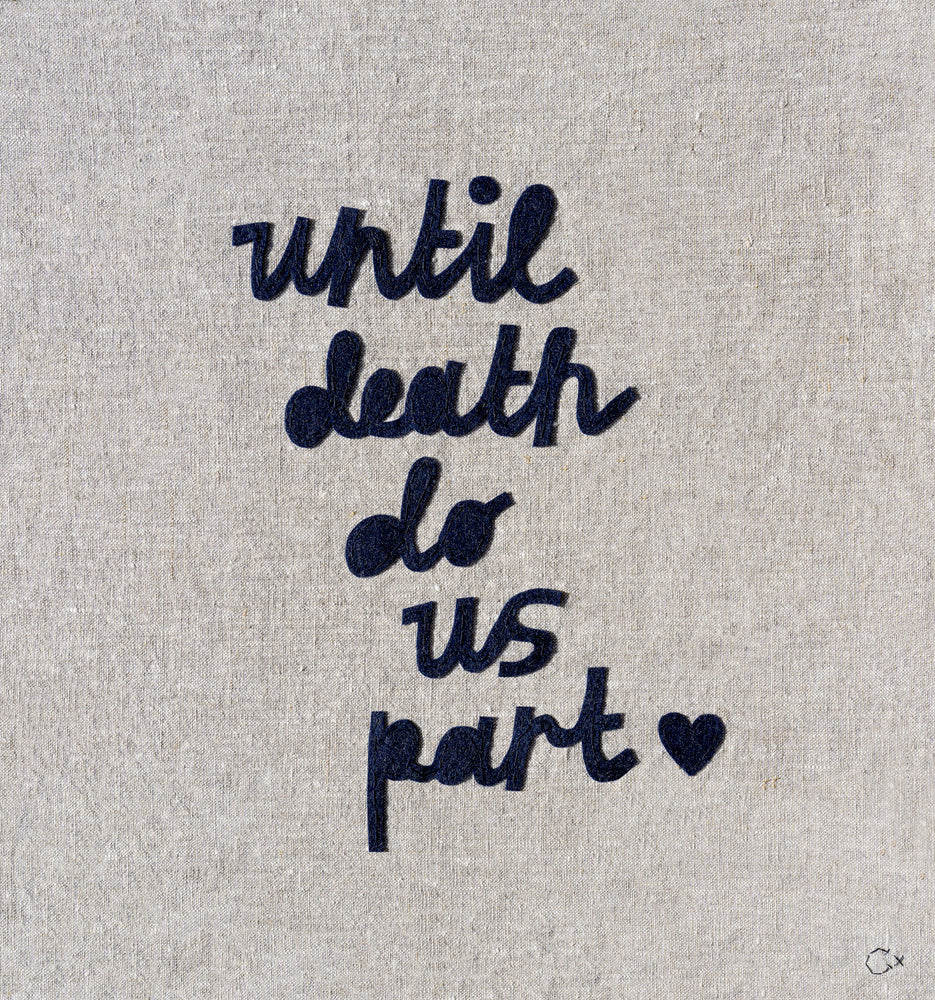 until
death
do
us
part ♥
Gx